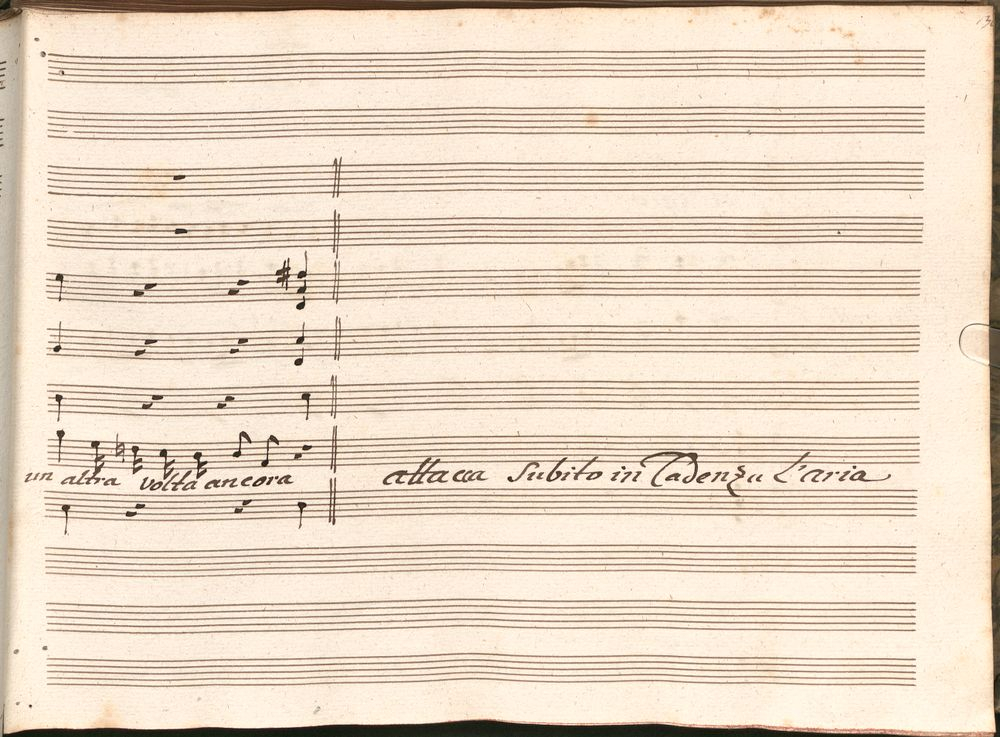 un altra volta ancora
attacca Subito in Cadenza L'aria